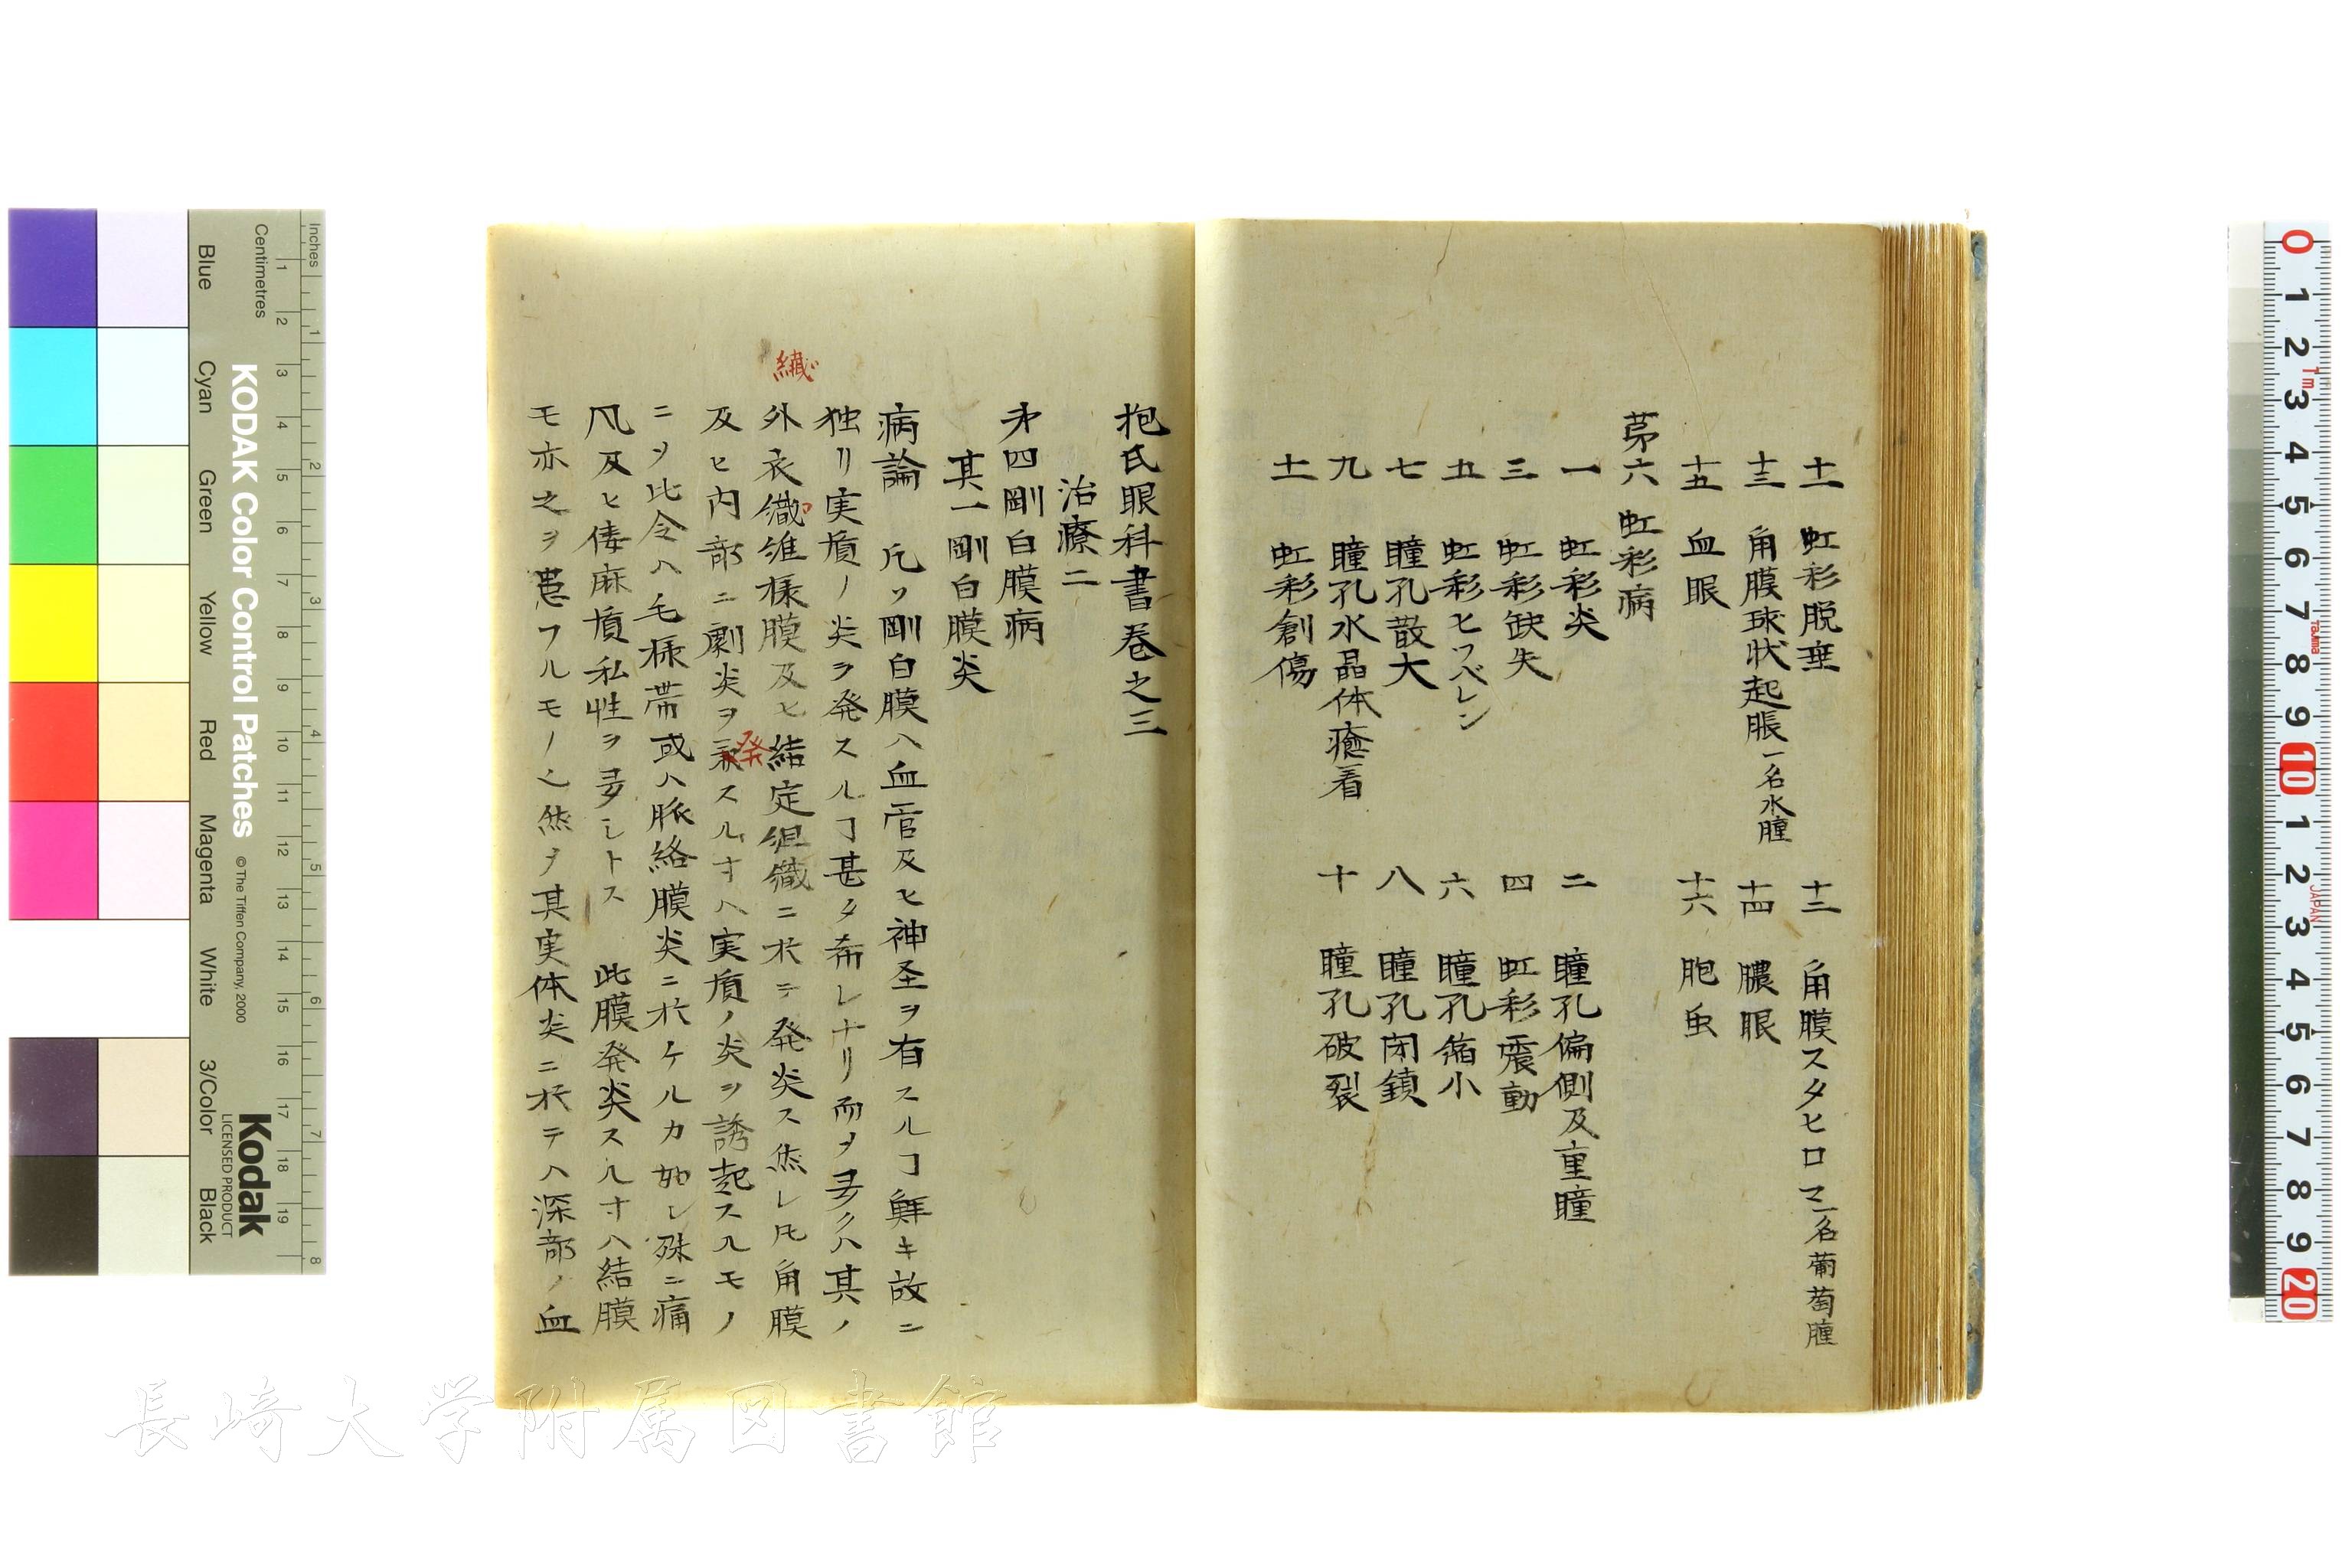 十一 虹彩脱垂 十二 角膜スタヒロマ一名葡萄腫
十三 角膜球状起脹一名水腫 十四 膿眼
十五 血眼 十六 胞虫
苐六 虹彩病
一 虹彩炎 二 瞳孔偏側及重瞳
三 虹彩缺失 四 虹彩震動
五 虹彩ヒツベレン 六 瞳孔縮小
七 瞳孔散大 八 瞳孔閉鎖
九 瞳孔水晶体癒着 十 瞳孔破裂
十一 虹彩創傷
抱氏眼科書巻之三
治療二
才四剛白膜病
其一剛白膜炎
病論 凡ソ剛白膜ハ血管及ヒ神圣ヲ有スルヿ鮮キ故ニ
独リ実質ノ炎ヲ発スルヿ甚タ希レナリ而ヲ多クハ其ノ
繊
外衣織維様膜及ヒ結定組織ニ於テ発炎ス然レ𪜈角膜
及ヒ内部ニ劇炎ヲ発スル寸ハ実質ノ炎ヲ誘起スルモノ
ニヲ比令ハ毛様帯或ハ脈絡膜炎ニ於ケルカ如レ殊ニ痛
凡及ヒ僂麻質私性ヲ多シトス 此膜発炎スル寸ハ結膜
モ亦之ヲ患フルモノ也然ヲ其実体炎ニ於テハ深部ノ血
KODAK Color Control Patches
© The Tiffen Company, 2000
Kodak
LICENSED PRODUCT
Inches
Centimetres
1 2 3 4 5 6 7 8 9 10 11 12 13 14 15 16 17 18 19
1 2 3 4 5 6 7 8
Blue Cyan Green Yellow Red Magenta White 3/Color Black
0 1 2 3 4 5 6 7 8 9 10 1 2 3 4 5 6 7 8 9 20
1m
TAJIMA
JAPAN
長崎大学附属図書館